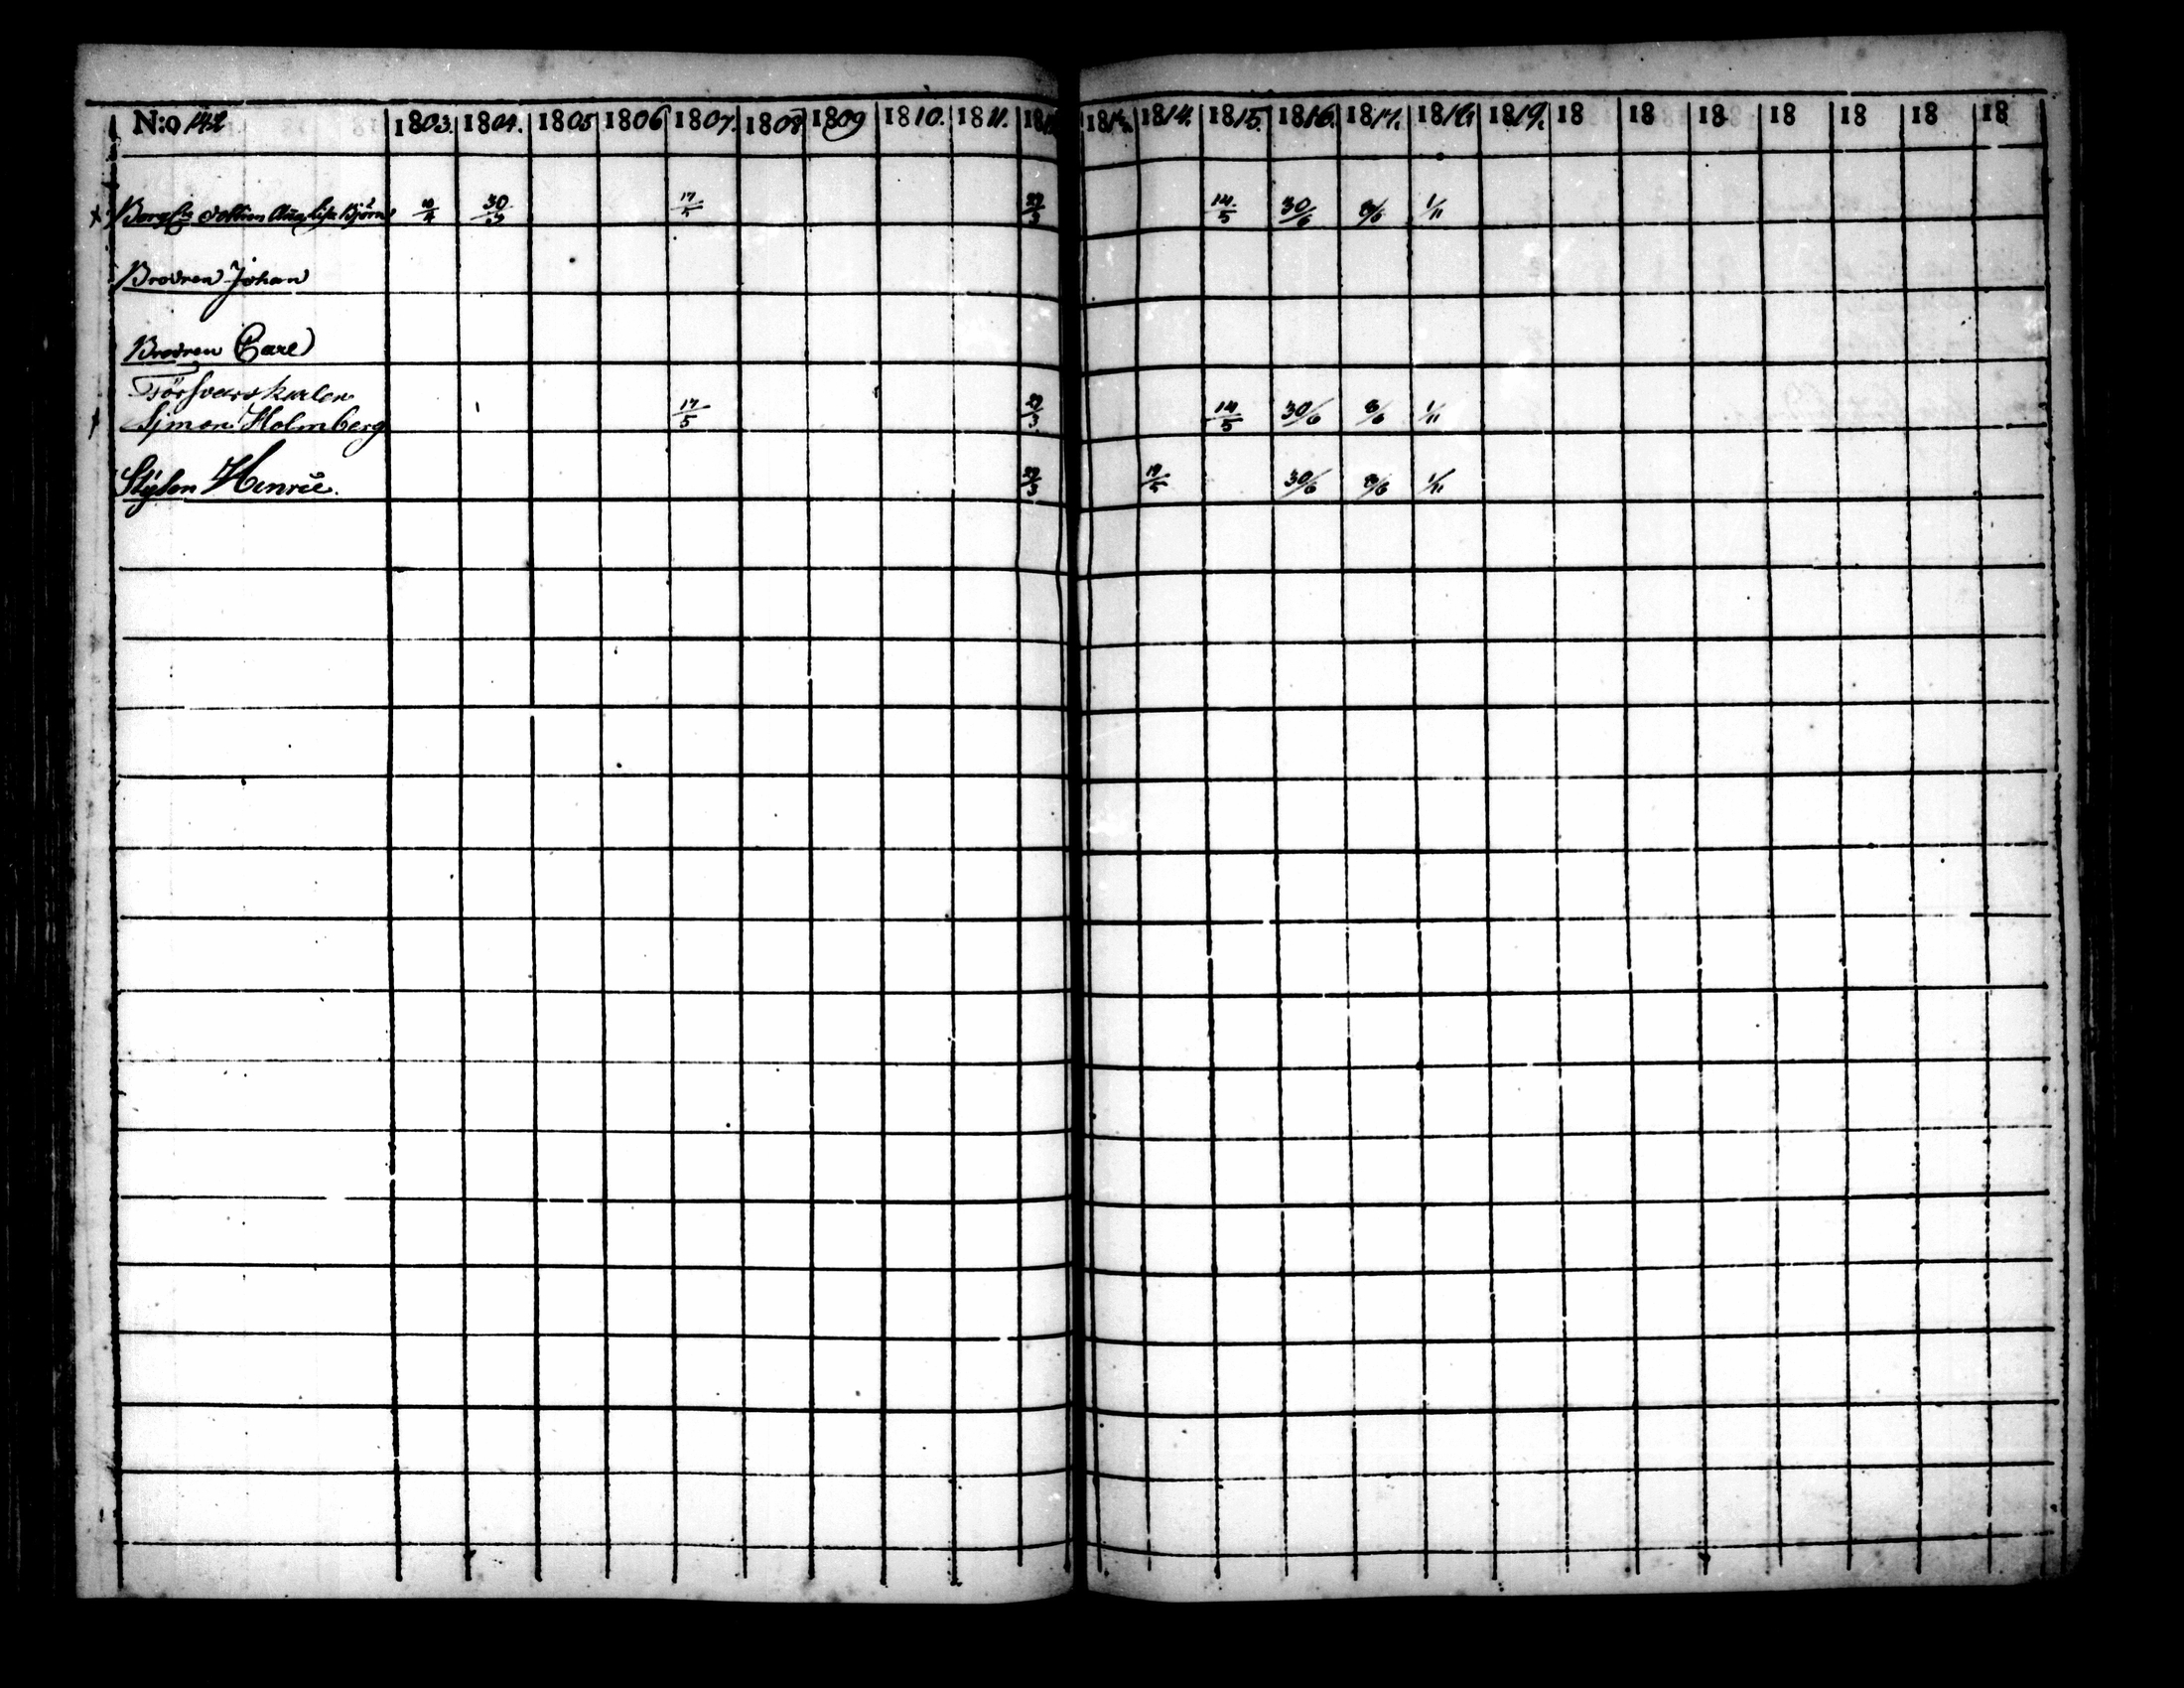 N:o 142 1803. 1804. 1805 1806 1807. 1808 1809 1810. 1811. 18 18 1814. 1815. 1816. 1817. 1818. 1819. 18 18 18 18 18 18 18
dottren Lisa 10/4 30/3 17/5 27/3 14/5 30/6 8/6 1/11
Brodren Johan
Brodren Carl
Försvarskarlen
Simon Holmberg 17/5 27/3 14/5 30/6 8/6 1/11
Henric 27/3 30/6 8/6 1/11